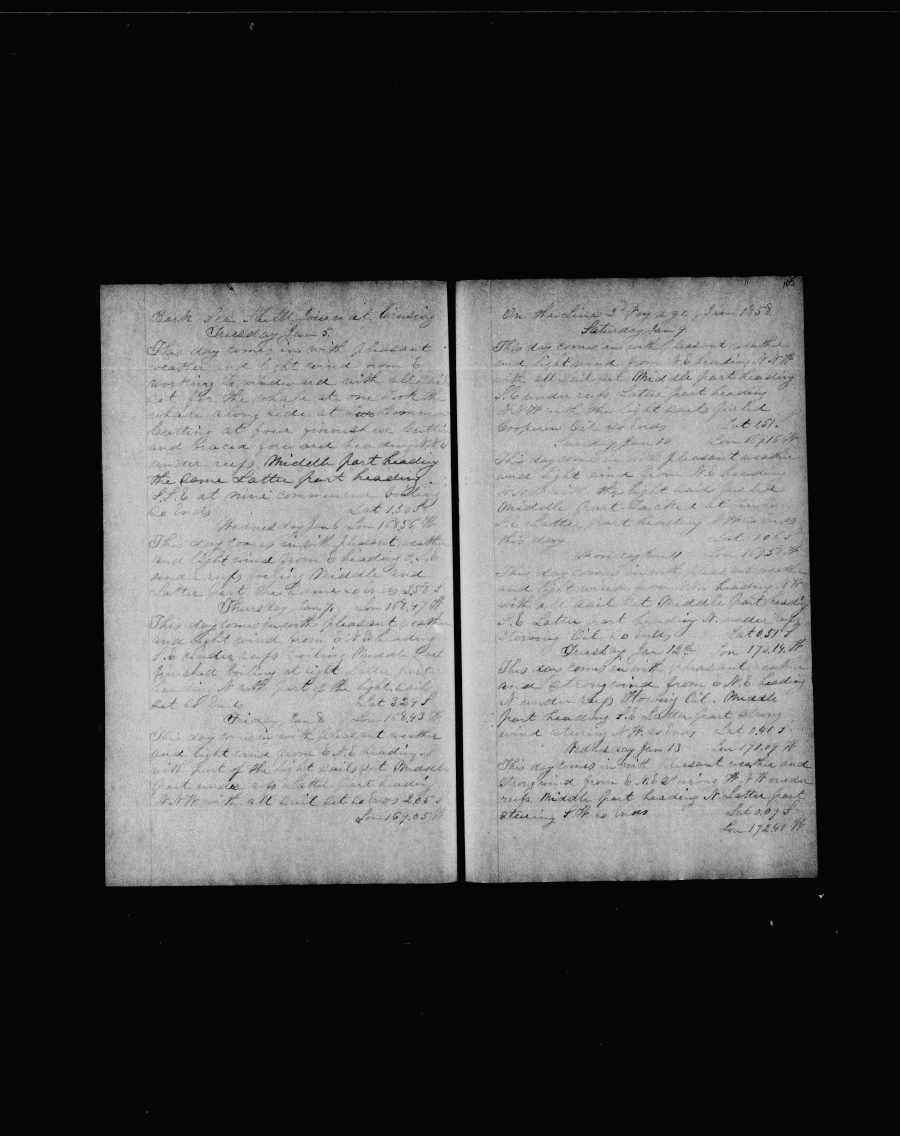 Bark Sea Shell Jan cruising
Tuesday Jan 5
This day comes in with pleasant
weather and light wind from E
working to windward with all sail
set for the whale at one took the
whale along side at two commen
cutting at four finnished cutting
and braced forward heading N N E
under reefs Middle part heading
the same Latter part heading
S.S.E at nine commenced boiling
So Ends Lat 1.50 S
Wednesday Jan 6 Lon 168.56 W
This day comes in with pleasant weather
and light wind from E heading S.S.E
under reefs boiling Middle and
Latter part the same so ends 2.58 S
Thursday Jan 7 Lon 168.47 W
This day comes in with pleasant weather
and light wind from E.N.E heading
S.E under reefs boiling Middle Part
finished boiling at eight Latter part
heading N with part of the light sails
set So Ends Lat 3.29 S
Friday Jan 8 Lon 168.43 W
This day comes in with pleasant weather
and light wind from E N.E heading N
with part of the light sails set Middle
part under reefs Latter part heading
N.N.W with all sail set So Ends 2.05 S
Lon 169.05 W
On the Line 3d Voyage Jan 1858
Saturday Jan 9
This day comes in with pleasant weather
and light wind from N.E heading N.N.W
with all sail set Middle part heading
S.E under reefs Latter part heading
N.N.W with the light sails furled
Coopering Oil So Ends Lat 1.51 S
Sunday Jan 10 Lon 169.16 W
This day comes in with pleasant weather
and light wind from N.E heading
with the light sails furled
Middle part tacked
S.E Latter part heading so ends
this day Lat 1.06 S
Monday Jan 11 Lon 169.58 W
This day comes in with pleasant weather
and light wind from heading N.W
with all sail set Middle Part heading
S.E Latter part heading N. under reefs
Stowing Oil So Ends Lat 0.51 S
Tuesday Jan 12th Lon 170.14 W
This day comes in with pleasant weather
and strong wind from E N.E heading
N under reefs Stowing Oil. Middle
part heading S.E Latter part strong
wind steering N.W. so ends Lat 0.40 S
Wednsday Jan 13 Lon 171.09 W
This day comes in with pleasant weather and
strong wind from E N.E staring W.N.W under
reefs Middle part heading N Latter part
steering S.W. So Ends Lat 0.09 S
Lon 172.41 W